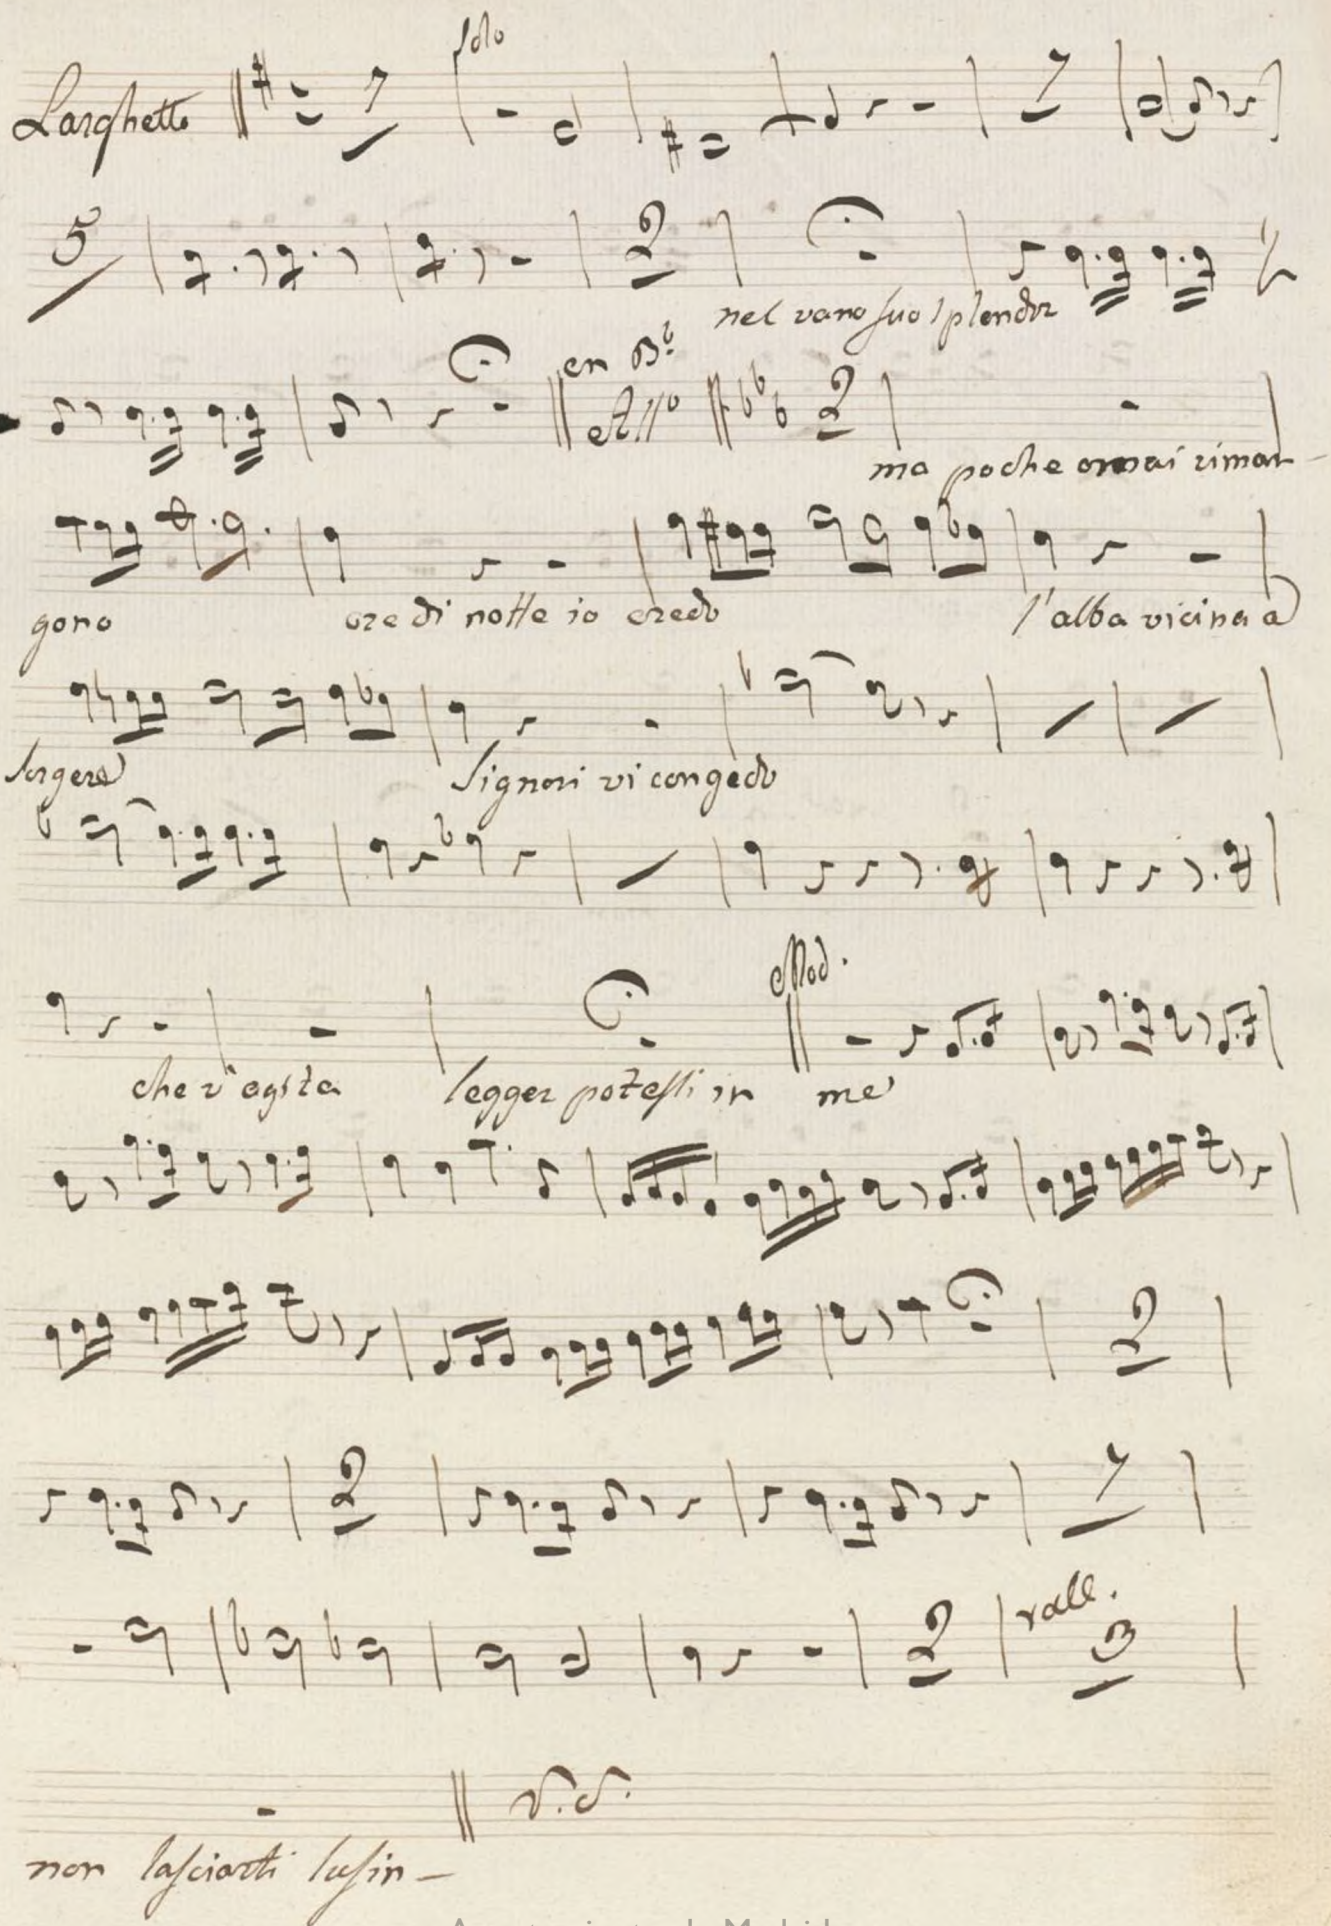 Solo
Larghetto 7 7
5 2
nel vano suo splendor
en Bb
Allo 2
ma poche omai riman-
gono ore di notte io credo l'alba vicina a
sorgere Signori vi congedo
Mod.
che v'agita legger potessi in me
2
2 7
rall.
2 3
V.S.
non lasciarti lusin-